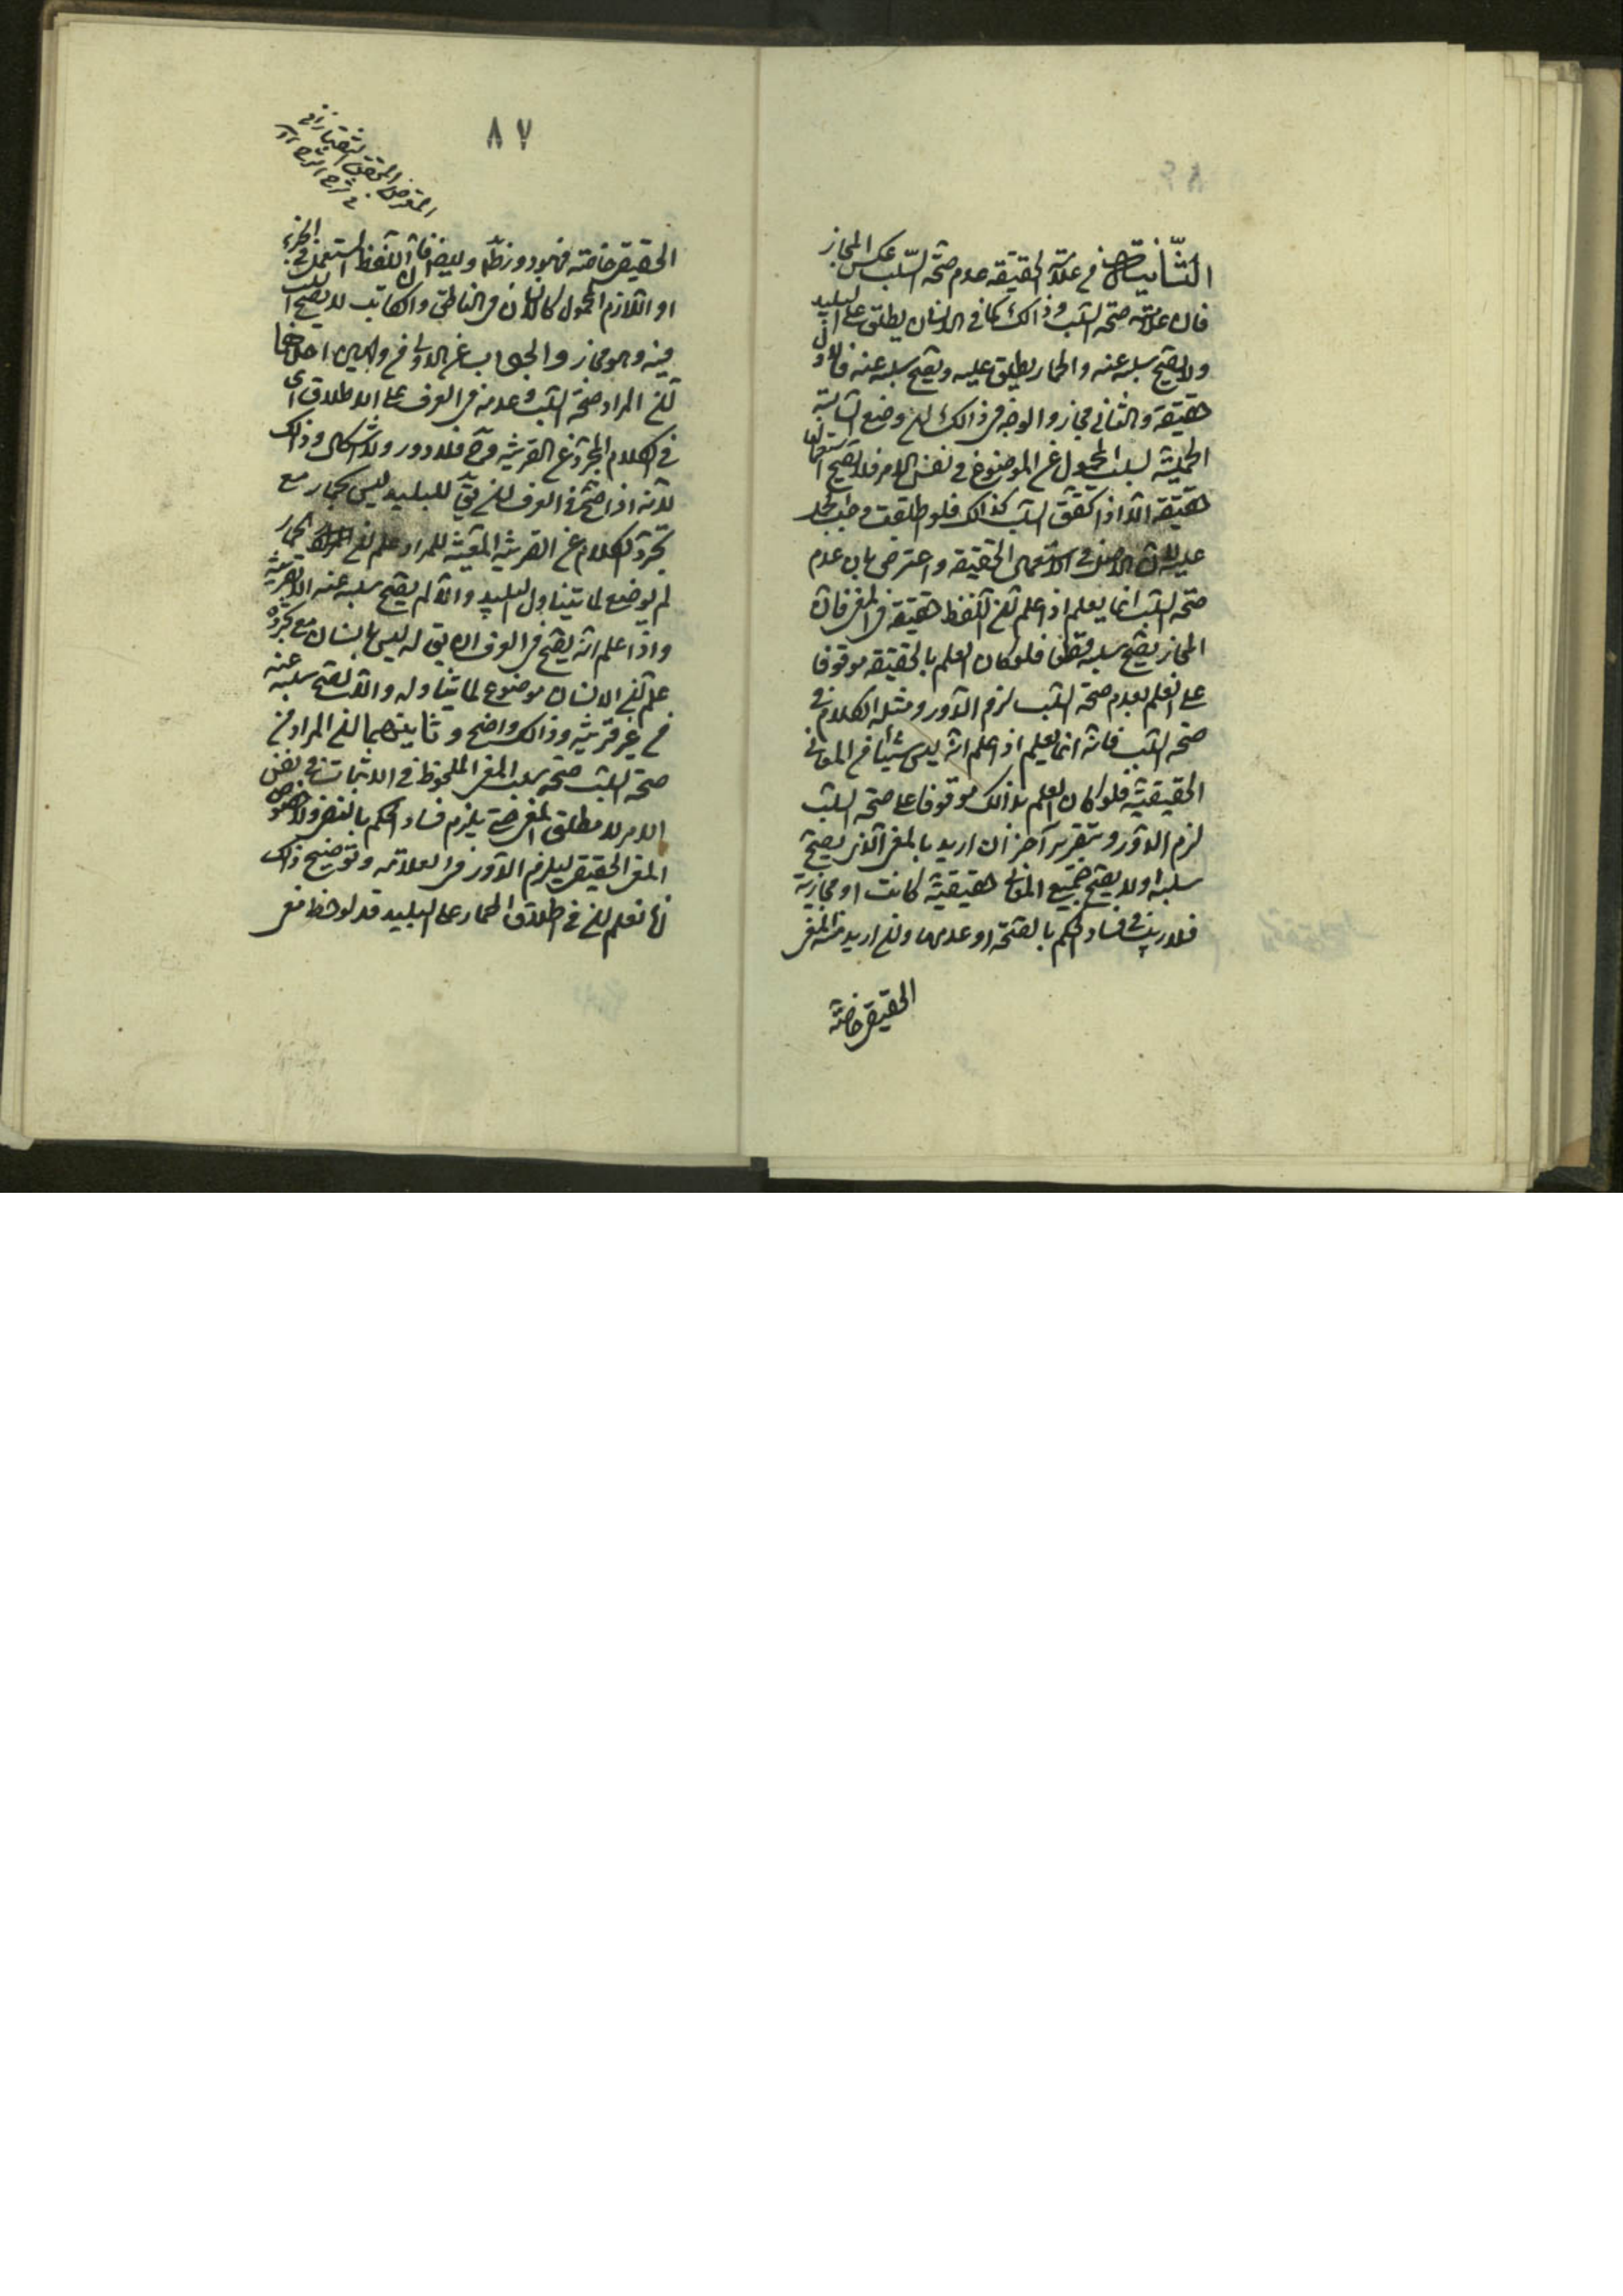 الثانية من علامة الحقيقة عدم صحة السلب عكس المجاز
فان علامته صحة السلب وذالك كما فى الانسان يطلق على البليد
ولا يصح سلبه عنه والحمار يطلق عليه ويصح سلبه عنه فالاول
حقيقة والثانى مجاز والوجه فى ذالك ان وضع السالبة
الحملية لسلب المحمول عن الموضوع فى نفس الامر فلا يصح استعمالها
حقيقة الا اذا تحقق السلب كذالك فلو اطلقت وجب الحمل
عليه لان الاصل فى الاستعمال الحقيقة واعترض بان عدم
صحة السلب انما يعلم اذا علم ان اللفظ حقيقة فى المعنى فان
المجاز يصح سلبه قطعا فلو كان العلم بالحقيقة موقوفا
على العلم بعدم صحة السلب لزم الدور ومثله الكلام فى
صحة السلب فانه انما يعلم اذا علم انه ليس شيئا من المعانى
الحقيقية فلو كان العلم بذالك موقوفا على صحة السلب
لزم الدور وبتقرير آخر ان اريد بالمعنى الذى يصح
سلبه اولا يصح جميع المعانى حقيقية كانت او مجازية
فلا ريب فى فساد الحكم بالصحة او عدمها وان اريد منه المعنى
الحقيقى خاصة
٨٧
المعترض المحقق التفتازانى
فى شرح الشرح
الحقيقى خاصة فهو دور وايضا فان اللفظ المستعمل فى الجزء
او اللازم المحمول كالانسان فى الناطق والكاتب لا يصح السلب
فيه وهو مجاز والجواب عن الاول من وجهين احدهما
ان المراد صحة السلب وعدمه فى العرف على الاطلاق اى
فى الكلام المجرد عن القرينة وح فلا دور ولا اشكال وذالك
لانه اذا صح فى العرف ان يق للبليد ليس بحمار مع
تجرد الكلام عن القرينة المعينة للمراد علم ان الحمار
لم يوضع لما يتناول البليد والا لم يصح سلبه عنه الا بقرينة
واذا علم انه يصح فى العرف ان يق له ليس بانسان مع تجرده
علم ان الانسان موضوع لما يتناوله والا لصح سلبه عنه
من غير قرينة وذالك واضح وثانيهما ان المراد من
صحة السلب صحة سلب المعنى الملحوظ فى الاثبات فى نفس
الامر لا مطلق المعنى حتى يلزم فساد الحكم بالنقض ولا خصوص
المعنى الحقيقى ليلزم الدور فى العلامة وتوضيح ذلك
انا نعلم ان فى اطلاق الحمار على البليد قد لوحظ معنى